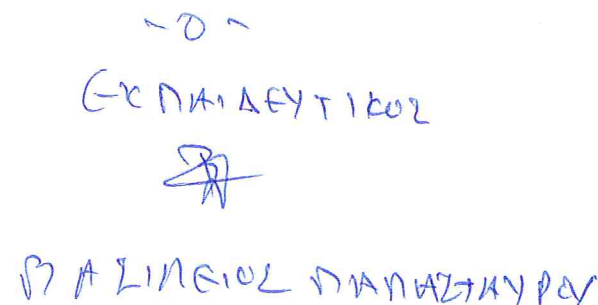 - Ο -
ΕΚΠΑΙΔΕΥΤΙΚΟΣ
ΒΑΣΙΛΕΙΟΣ ΠΑΠΑΣΤΑΥΡΟΥ